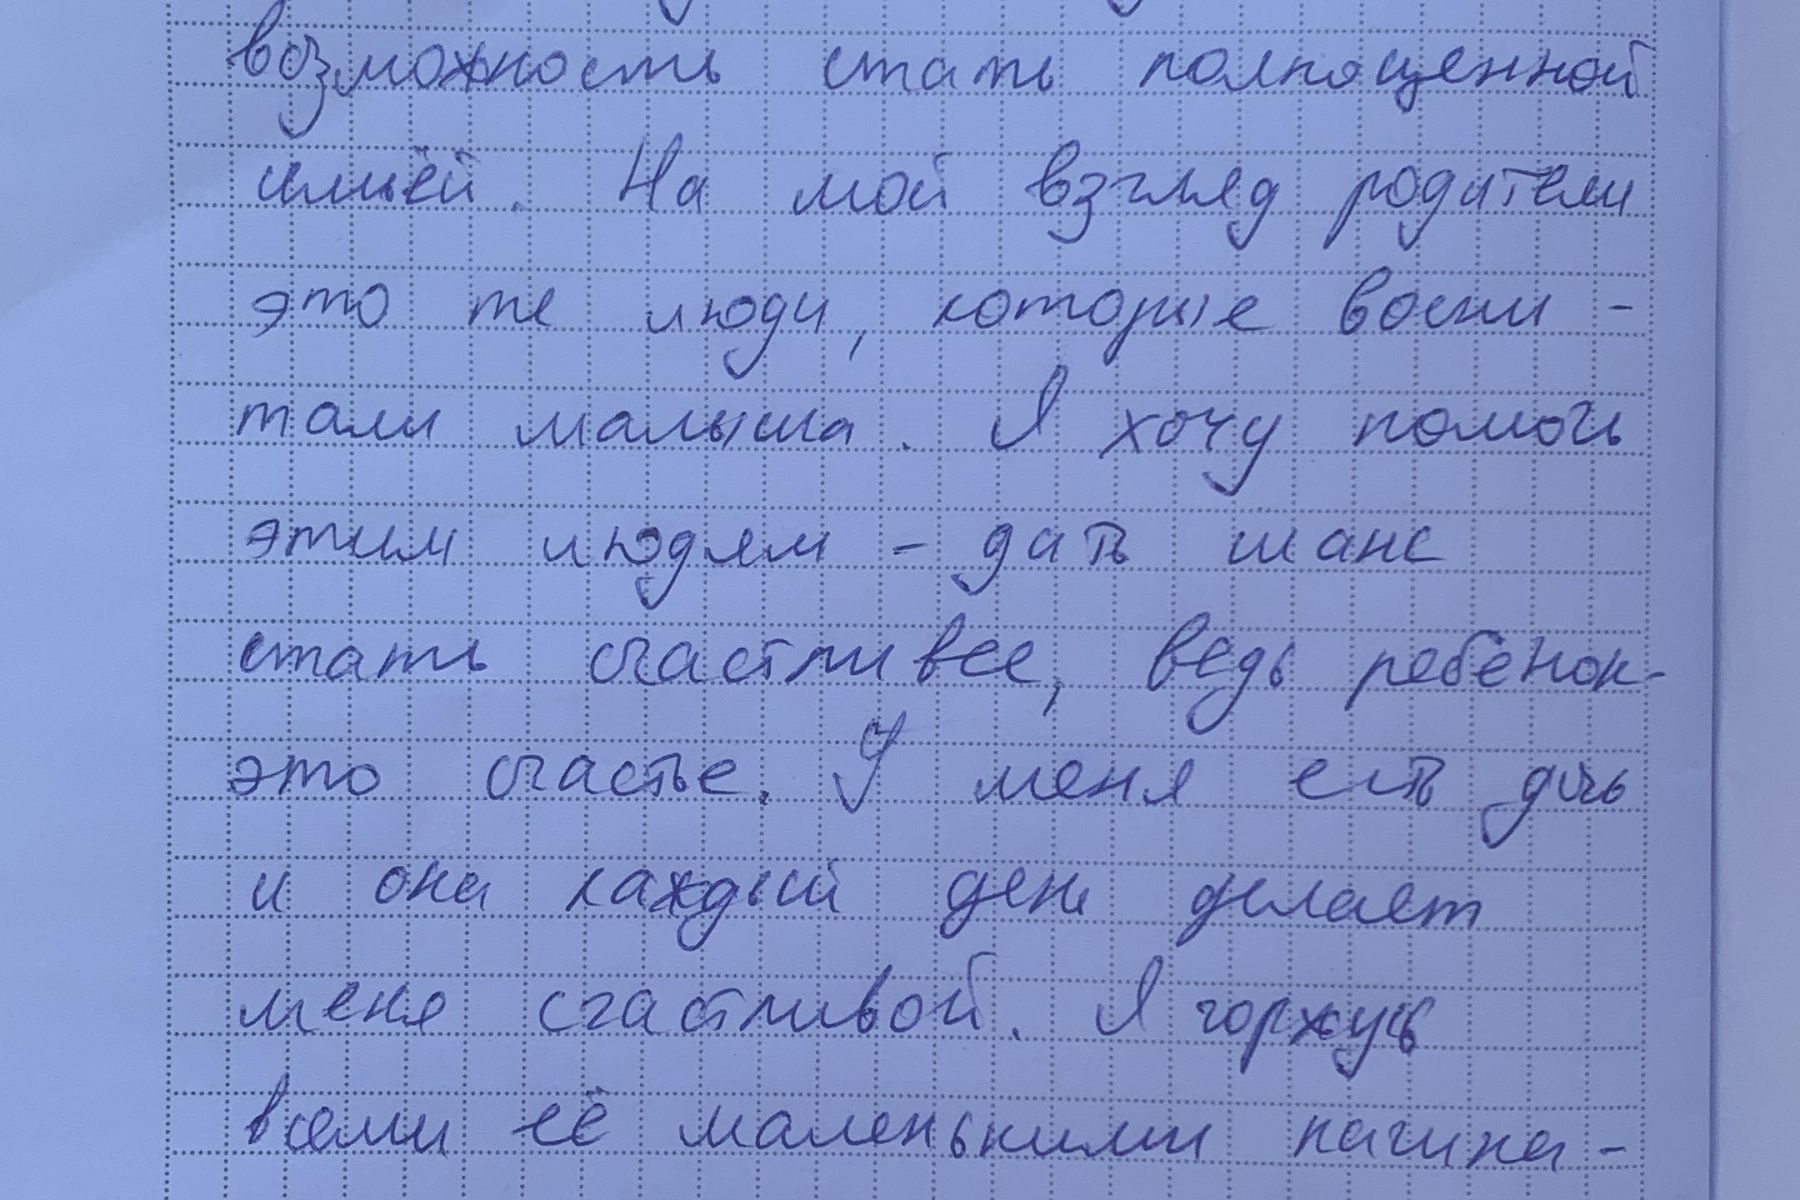 возможность стать полноценной
семьёй. На мой взгляд родители
это те люди, которые воспи-
тали малыша. Я хочу помочь
этим людям - дать шанс
стать счастливее, ведь ребёнок-
это счастье. У меня есть дочь
и она каждый день делает
меня счастливой. Я горжусь
всеми её маленькими начина-